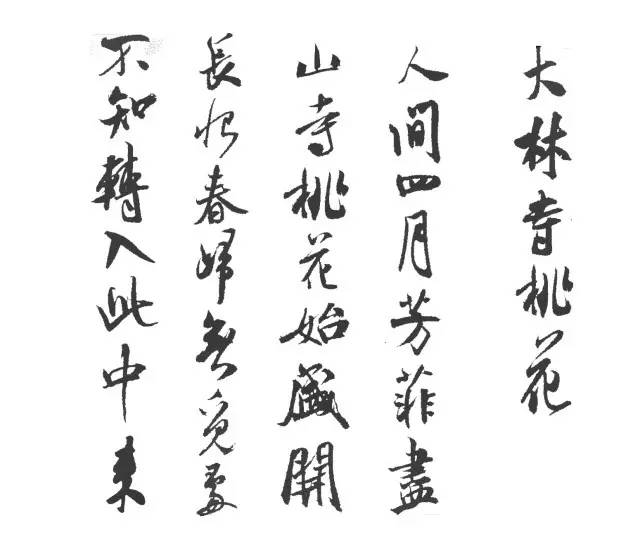 大林寺桃花
人間四月芳菲盡
山寺桃花始盛開
長恨春歸無覓處
不知轉入此中来